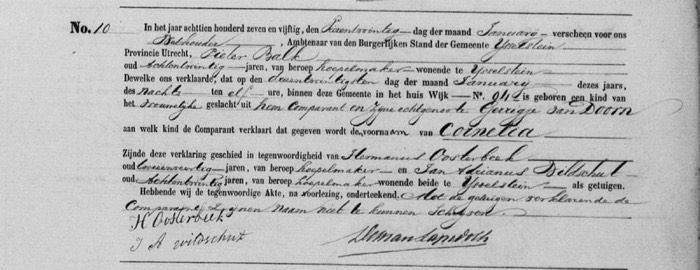 No. 10 In het jaar achttien honderd zeven en vijftig, den dag der maand Januarij verscheen voor ons
Wethouder, Ambtenaar van den Burgerlijken Stand der Gemeente Ysselstein
Provincie Utrecht, Pieter Balk
oud Achtentwintig jaren, van beroep hoepelmaker wonende te Ysselstein
Dewelke ons verklaarde, dat op den dag der maand Januarij dezes jaars,
des Nachts ten elf ure, binnen deze Gemeente in het huis Wijk No. is geboren een kind van
het Vrouwelijke geslacht uit hem Comparant en Zijne echtgenoote Gerrigje van Doorn
aan welk kind de Comparant verklaart dat gegeven wordt de voornaam van Cornelia
Zijnde deze verklaring geschied in tegenwoordigheid van Hermanus Oosterbeek
oud jaren, van beroep hoepelmaker en Jan Adrianus Wildschut
oud Achtentwintig jaren, van beroep hoepelmaker wonende beide te Ysselstein als getuigen.
Hebbende wij de tegenwoordige Akte, na voorlezing, onderteekend. Met de getuigen verklarende de
Comparant Zijnen naam niet te kunnen Schrijven.
H Oosterbeek
J A wildschut